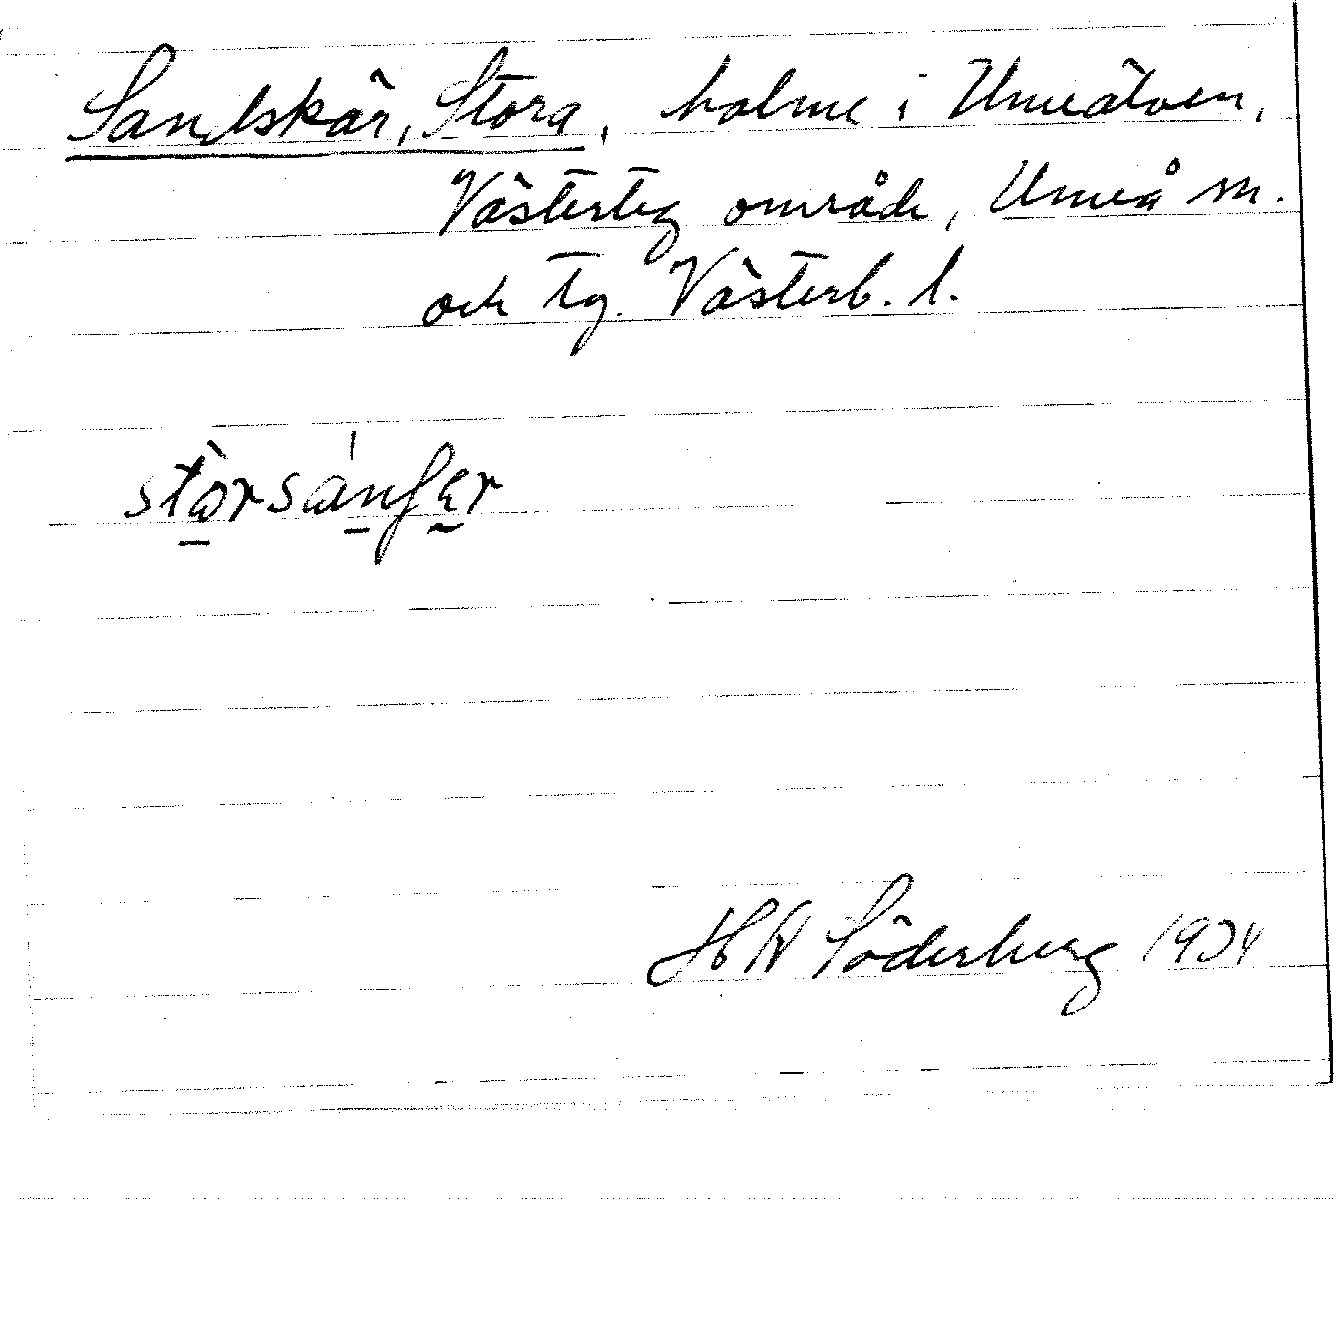 Sandskär, Stora, holme i Umeälven,
Västerteg område, Umeå sn.
och tg. Västerb. l.
HW Söderberg 1934